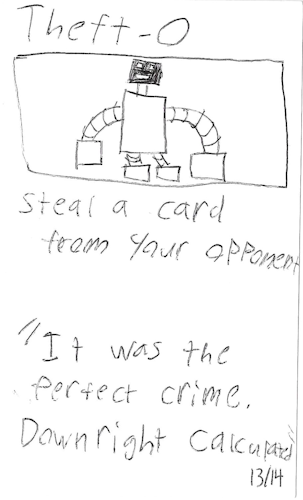 Theft-O
steal a card
from your opponent
"It was the
perfect crime.
Downright calculated"
13/14